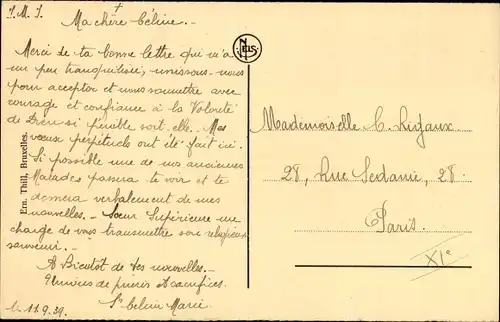 J. M. J. +
Ma chère Céline. -
Merci de ta bonne lettre qui m'a
un peu tranquilisée, unissons-nous
pour accepter et nous soumettre avec
courage et confiance à la Volonté
de Dieu si pénible soit-elle. Mes
vœux perpétuels ont été fait ici.
Si possible une de mes anciennes
Malades passera te voir et te
donnera verbalement de mes
nouvelles. - Soeur Supérieure me
charge de vous transmettre son religieux
souvenir. -
A Bientôt de tes nouvelles. -
Unions de prières et sacrifices.
Marie
le 11.9.39
Ern. Thill, Bruxelles.
NELS
Mademoiselle C. Rifaux
28, Rue Sedaine, 28
Paris.
XIe